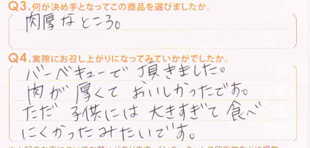 Q3.何が決め手となってこの商品を選びましたか。
肉厚なところ。
Q4.実際にお召し上がりになってみていかがでしたか。
バーベキューで頂きました。
肉が厚くておいしかったです。
ただ子供には大きすぎて食べ
にくかったみたいです。